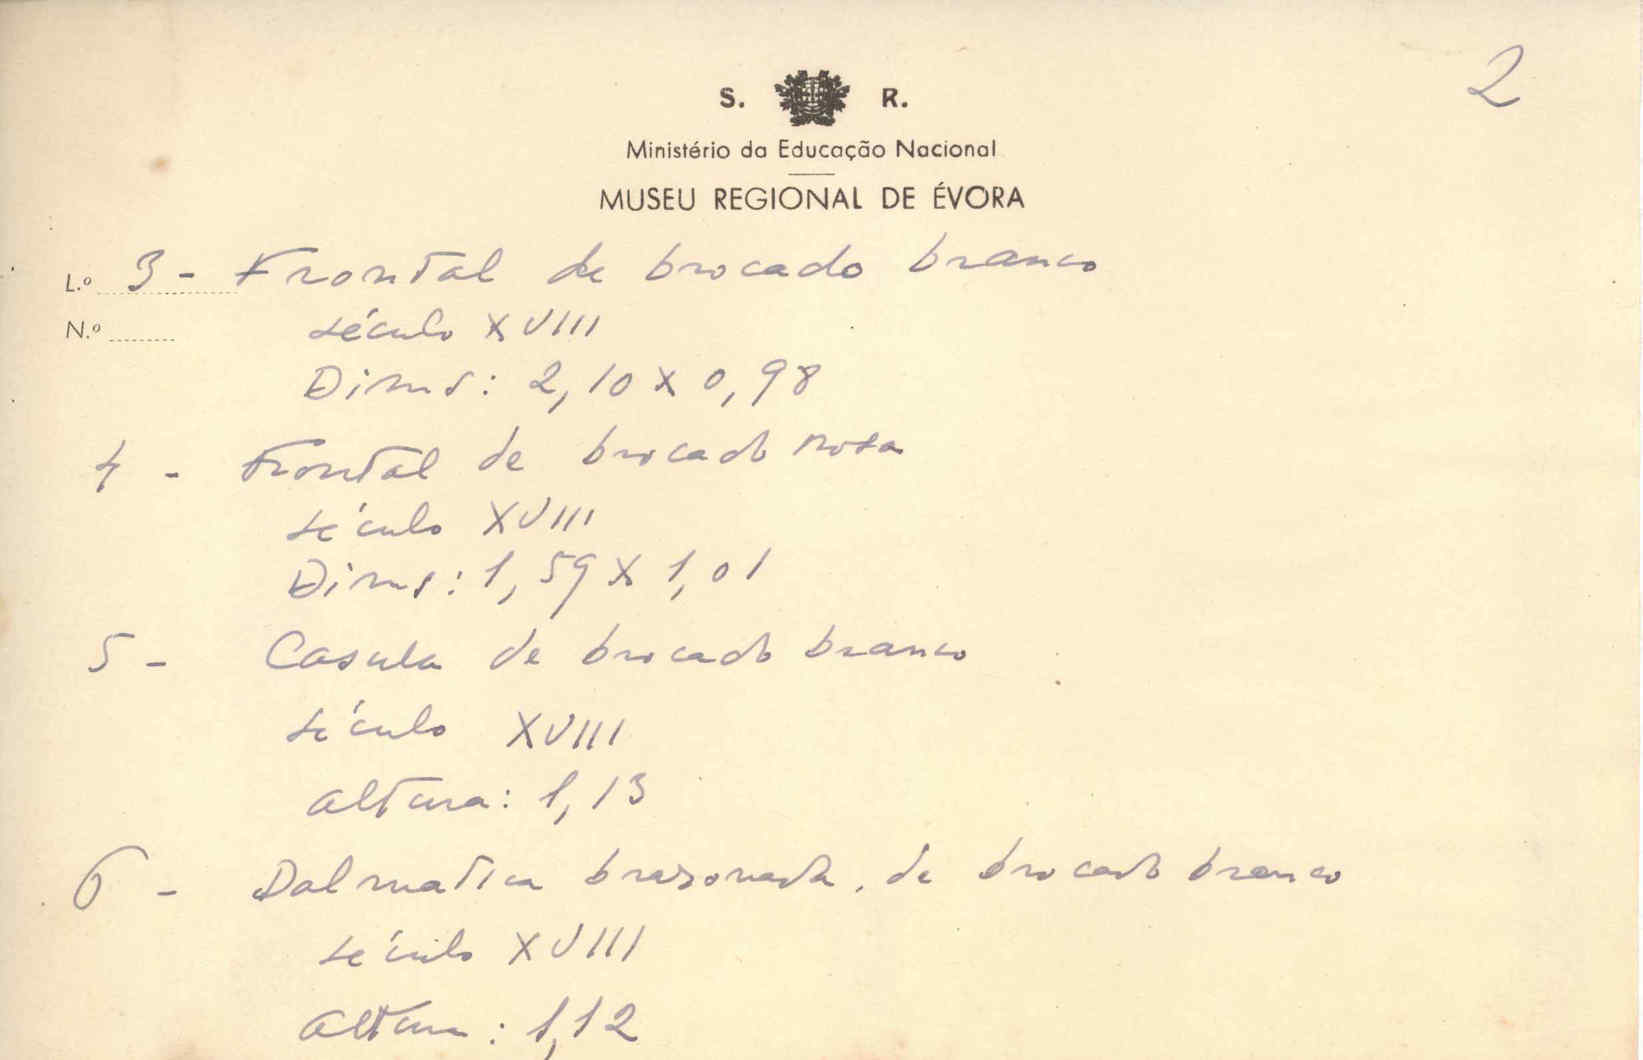 2
S. R.
Ministério da Educação Nacional
MUSEU REGIONAL DE ÉVORA
L.º 3 - Frontal de brocado branco
N.º século XVIII
Dims: 2,10 x 0,98
4 - Frontal de brocado rosa
século XVIII
Dims: 1,59 x 1,01
5 - Casula de brocado branco
século XVIII
altura: 1,13
6 - Dalmatica brazonada, de brocado branco
século XVIII
altura: 1,12